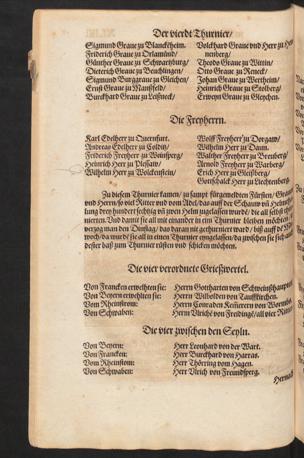 Der vierdt Thurnier/
Sigmund Graue zu Blanckheim.
Friderich Graue zu Orlamünd/
Günther Graue zu Schwartzburg/
Dieterich Graue zu Beuchlingen/
Sigmund Burggraue zu Gleichen/
Ernst Graue zu Manßfeld/
Burckhard Graue zu Leißneck/
Volckhard Graue vnd Herr zu
nenberg/
Theodo Graue zu Wittin/
Otto Graue zu Reneck/
Johan Graue zu Wertheim/
Heinrich Graue zu Stolberg/
Erweyn Graue zu Gleychen.
Die Freyherrn.
Karl Edelherr zu Quernfurt.
Andreas Edelherr zu Colditz/
Friderich Freyherr zu Weinsperg/
Heinrich Herr zu Plessaw/
Wilhelm Herr zu Wolckenstein/
Wolff Freyherr zu Torgaw/
Wilhelm Herr zu Daun.
Walther Freyherr zu Vrenburg/
Arnold Freyherr zu Warberg/
Erich Herr zu Gleißberg/
Gottschalck Herr zu Liechtenberg.
Zu diesem Thurnier kamen/ zu sampt fürgemelten Fürsten/
vnd Herrn/ so viel Ritter vnd vom Adel/ das auff der Schauw vñ
lung drey hundert sechtzig vñ zween Helm zugelassen wurdē/ die all selbst
nierten. Vnd damit sie all mit einander in ein Thurnier bleiben möchten/
verzog man den Dinstag/ das daran nit gethurniert ward/ biß auff dē
woch/ da wurdē sie all in einen Thurnier eingelassen/ da zwischen sie sich
dester baß zum Thurnier rüsten vnd schicken möchten.
Die vier verordnete Grießwertel.
Von Francken erwehlten sie: Herrn Gotthartten von Schweinßhaupten
Von Beyern erwehlten sie: Herrn Wilbolden von Tauffkirchen.
Vom Rheinstrom: Herrn Conraden Kesserern von Wormbs.
Von Schwaben: Herrn Vlrichē von Freidingē/ all vier Ritter
Die vier zwischen den Seyln.
Von Beyern: Herr Leonhard von der Wart.
Von Francken: Herr Burckhard von Harras.
Vom Rheinstom: Herr Thörring vom Hagen.
Von Schwaben: Herr Vlrich von Freundsperg.